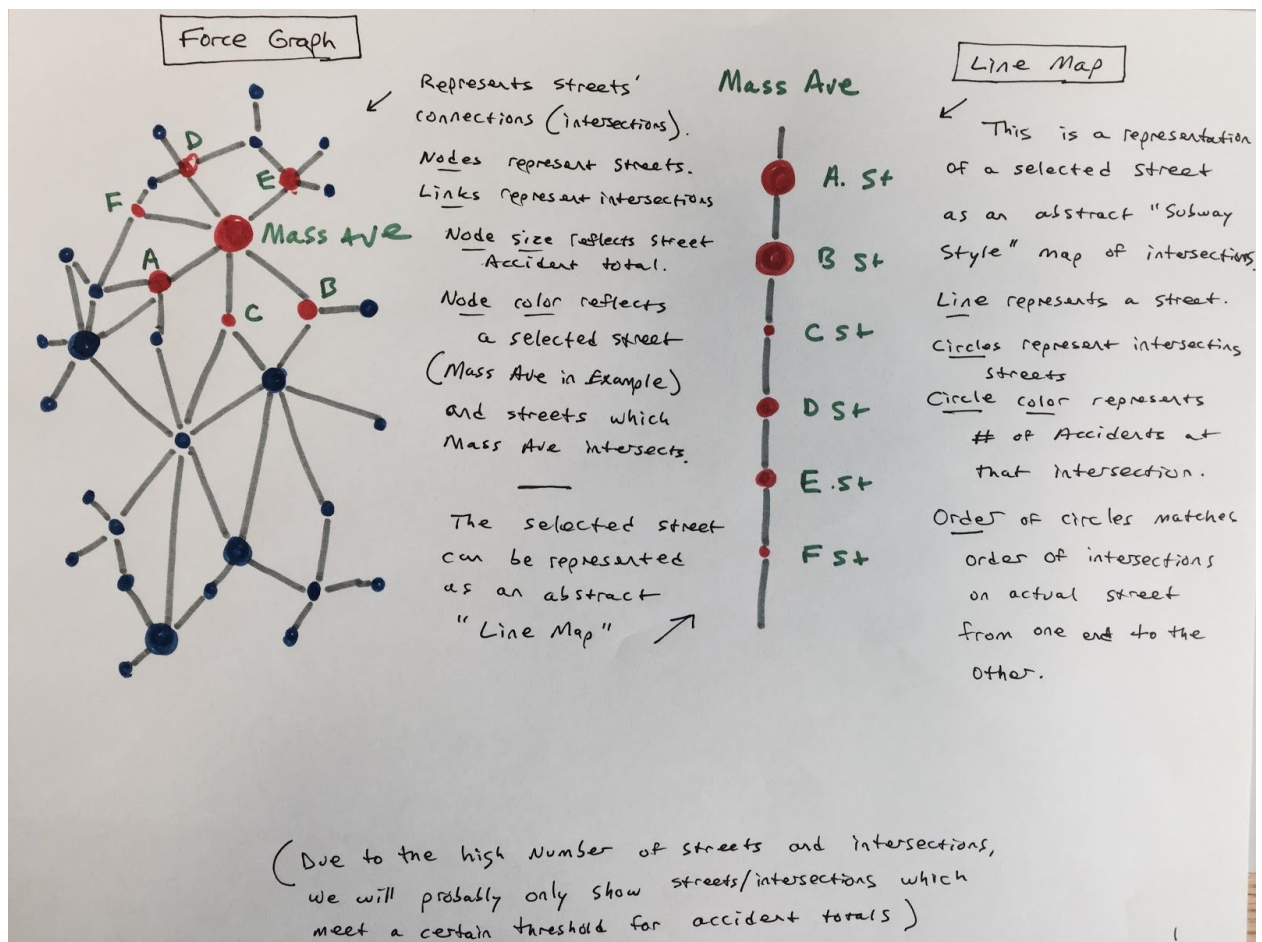 Force Graph
Represents Streets'
connections (intersections).
Nodes represent streets.
Links represent intersections
Node size reflects street
Accident total.
Node color reflects
a selected street
(Mass Ave in Example)
and streets which
Mass Ave intersects.
The selected street
can be represented
as an abstract
"Line Map"
D
E
F
Mass Ave
A
B
C
Mass Ave
A. St
B St
C St
D St
E. St
F St
Line Map
This is a representation
of a selected street
as an abstract "Subway
Style" map of intersections.
Line represents a street.
Circles represent intersecting
streets
Circle color represents
# of Accidents at
that intersection.
Order of circles matches
order of intersections
on actual street
from one end to the
other.
(Due to the high Number of streets and intersections,
we will probably only show streets/intersections which
meet a certain threshold for accident totals)
1